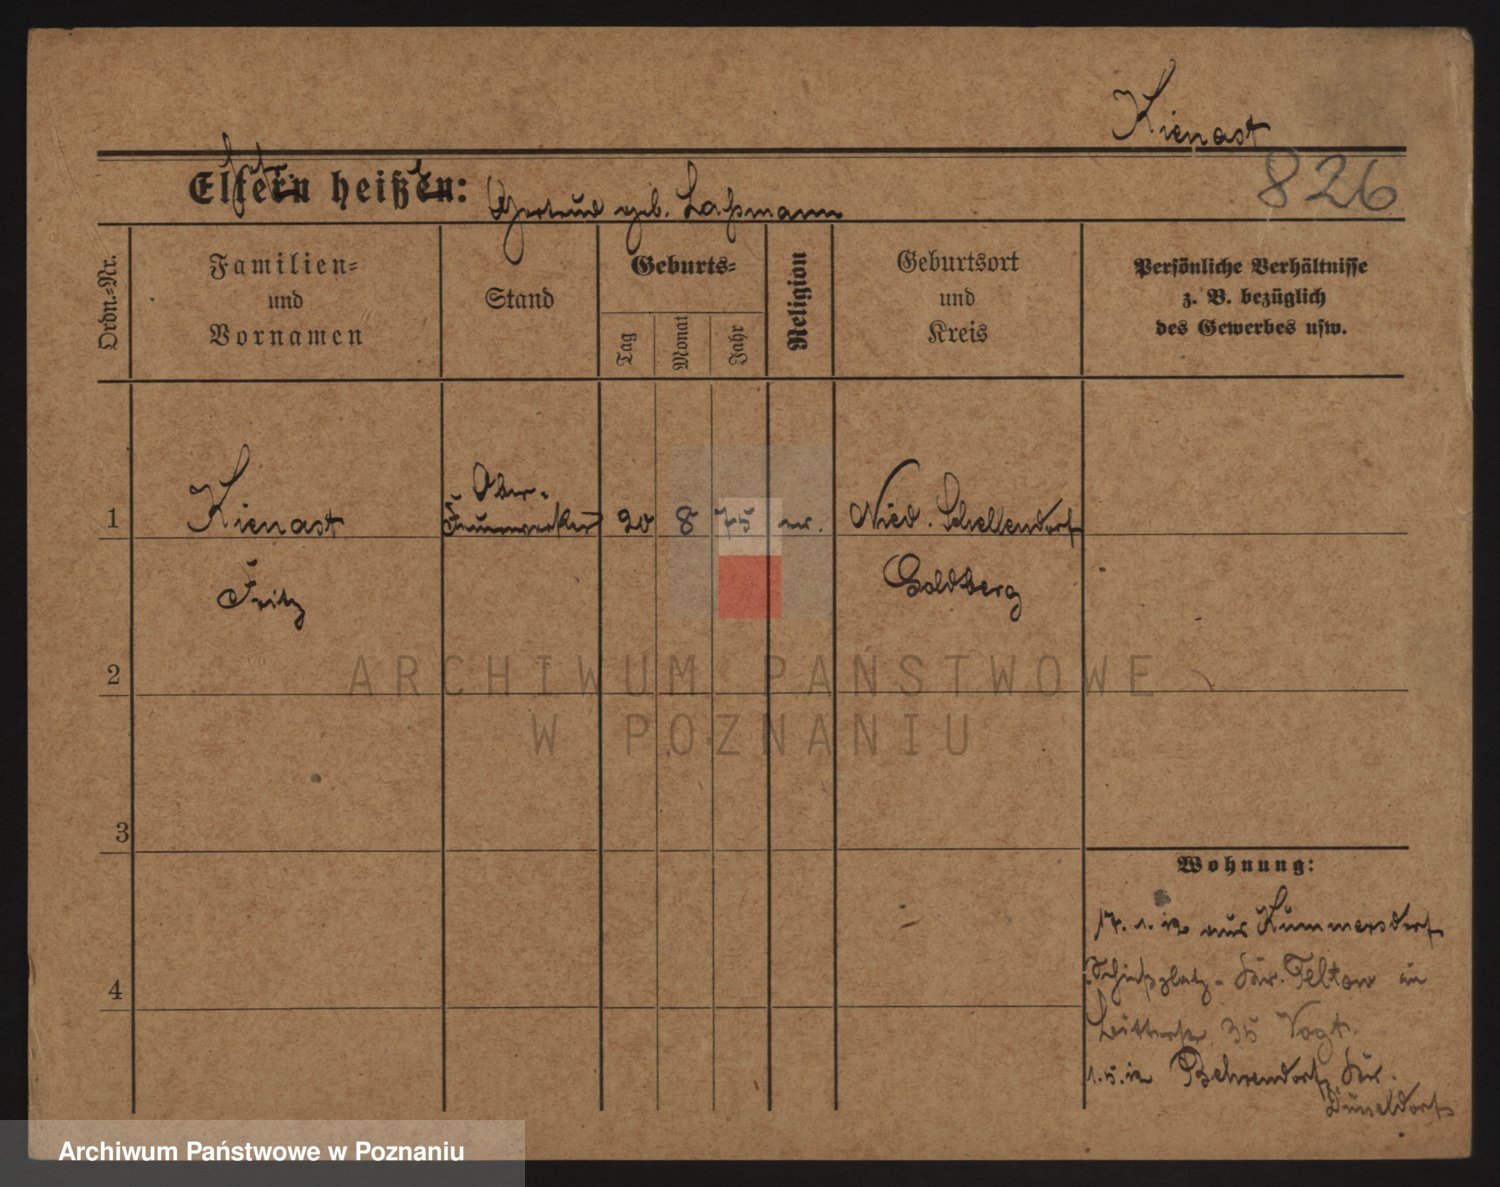 Kienast
826
Eltern heißen: Gertrud geb. Laßmann
Ordn.-Nr.
Familien-
und
Vornamen
Stand
Geburts-
Tag
Monat
Jahr
Religion
Geburtsort
und
Kreis
Persönliche Verhältnisse
z. B. bezüglich
des Gewerbes usw.
1
Kienast
Ober-
Feuerwerker
20
8
75
ev.
Nied. Schellendorf
Fritz
Goldberg
2
3
4
Wohnung:
17. 1. 12 aus Kummersdorf
Schießplatz - Kr. Teltow in
35 Vogt.
1. 5. 12 Kr.
Düsseldorf
ARCHIWUM PAŃSTWOWE
W POZNANIU
Archiwum Państwowe w Poznaniu